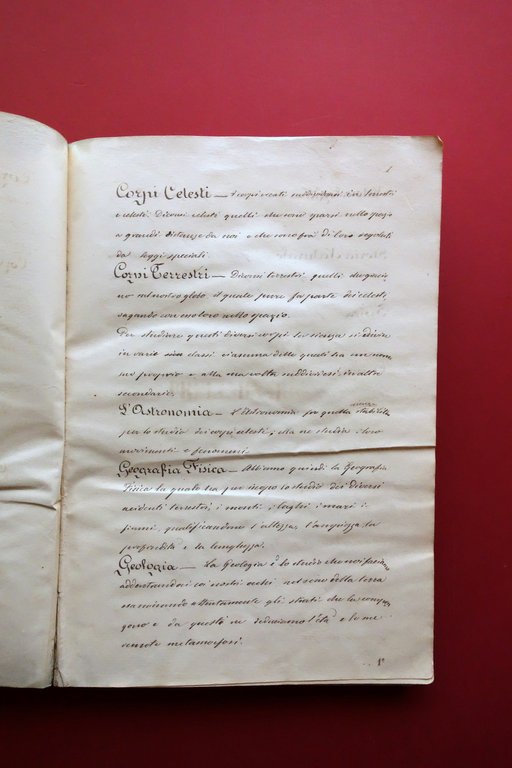 1
Corpi Celesti — I corpi creati suddividonsi in terrestri
e celesti. Diconsi celesti quelli che sono sparsi nello spazio
a grandi distanze da noi e che sono fra di loro regolati
da leggi speciali.
Corpi Terrestri — Diconsi terrestri quelli che giacio
no nel nostro globo il quale pure fa parte dei celesti,
vagando con essi loro nello spazio.
Per studiare questi diversi corpi la scienza si divise
in varie classi ciascuna delle quali ha un no
me proprio e alla sua volta suddividesi in altre
secondarie.
L'Astronomia — L'Astronomia fu quella scienza
per lo studio dei corpi celesti; ella ne studia i loro
movimenti e fenomeni.
Geografia Fisica — Abbiamo quindi la Geografia
Fisica la quale ha per iscopo lo studio dei diversi
accidenti terrestri, i monti, i laghi, i mari, i
fiumi, qualificandone l'altezza, l'ampiezza, la
profondità e la lunghezza.
Geologia — La Geologia è lo studio che noi facciamo
addentrandoci coi nostri occhi nel seno della terra
esaminando attentamente gli strati che la compon
gono e da questi ne deduciamo l'età e le av
venute metamorfosi.
1°